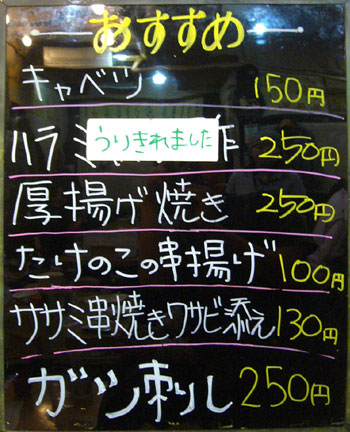 おすすめ
キャベツ 150円
ハラミ うりきれました 250円
厚揚げ焼き 250円
たけのこの串揚げ 100円
ササミ串焼きワサビ添え 130円
ガツ刺し 250円